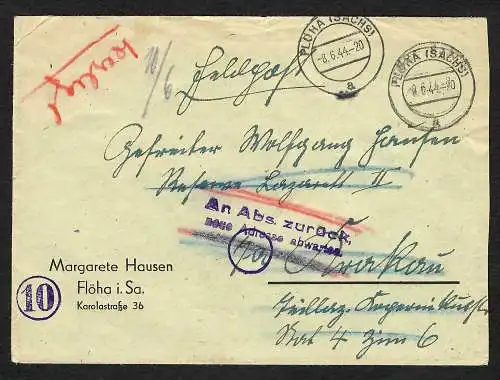 verlegt
10/6
Feldpost
FLÖHA (SACHS)
-8.6.44.-20
a
FLÖHA (SACHS)
-8.6.44.-20
a
Gefreiter Wolfgang Hansen
Reserve Lazarett II
An Abs. zurück,
neue Adresse abwarten.
Krakau
Teillaz. Kopernikusstr
Stat 4 Zim 6
Margarete Hausen
Flöha i. Sa.
Karolastraße 36
10